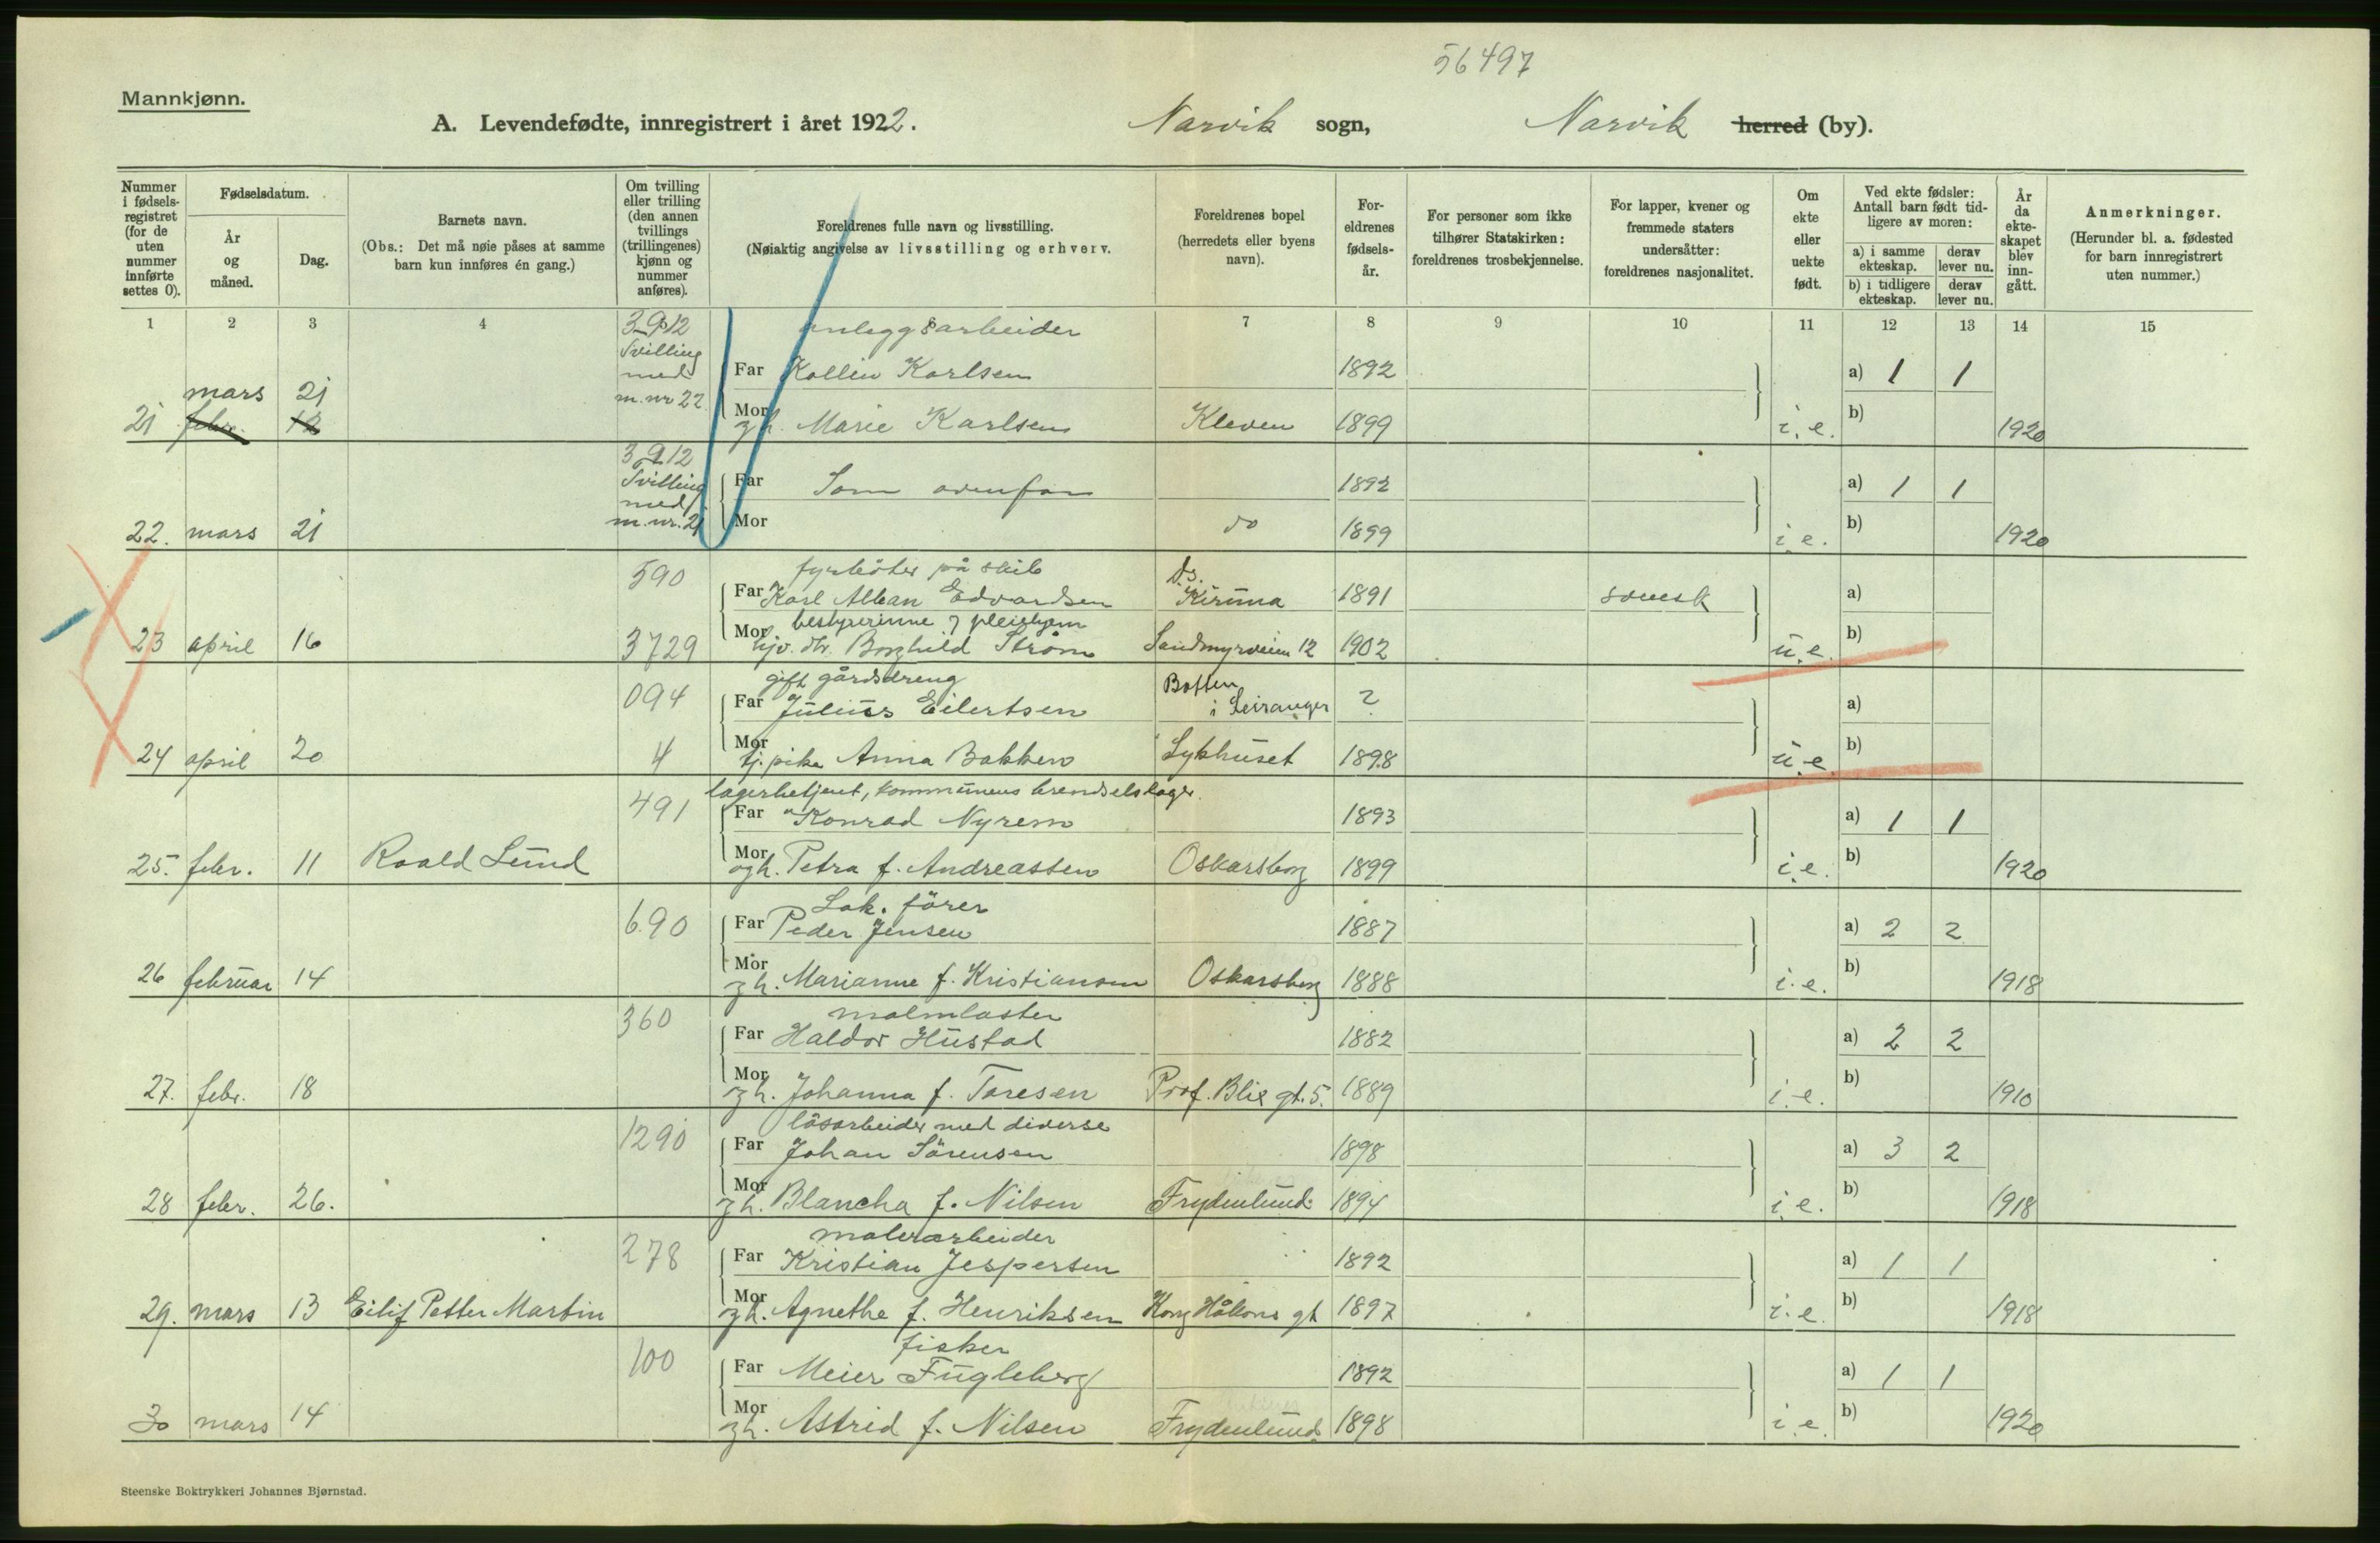 56497
Mannkjønn.
A. Levendefødte, innregistrert i året 1922. Narvik sogn, Narvik herred (by).
Nummer i fødselsregistret (for de uten nummer innførte settes 0).
Fødselsdatum.
År og måned.
Dag.
Barnets navn.
(Obs.: Det må nøie påses at samme barn kun innføres én gang.)
Om tvilling eller trilling (den annen tvillings (trillingenes) kjønn og nummer anføres).
Foreldrenes fulle navn og livsstilling.
(Nøiaktig angivelse av livsstilling og erhverv.
Foreldrenes bopel (herredets eller byens navn).
Foreldrenes fødselsår.
For personer som ikke tilhører Statskirken: foreldrenes trosbekjennelse.
For lapper, kvener og fremmede staters undersåtter: foreldrenes nasjonalitet.
Om ekte eller uekte født.
Ved ekte fødsler: Antall barn født tidligere av moren:
a) i samme ekteskap. derav lever nu.
b) i tidligere ekteskap. derav lever nu.
År da ekteskapet blev inngått.
Anmerkninger.
(Herunder bl. a. fødested for barn innregistrert uten nummer.)
1 2 3 4 7 8 9 10 11 12 13 14 15
3912 anleggsarbeider
Tvilling med m. nr 22 Far Kollin Karlsen 1892 a) 1 1
21 mars 21 febr. 12 Mor gh. Marie Karlsen Kleven 1899 i.e. b) 1920
3912
Tvilling med m. nr. 21 Far Som ovenfor 1892 a) 1 1
22. mars 21 Mor do 1899 i.e. b) 1920
590 fyrböter på skib ds.
Far Karl Alban Edvardsen Kiruna 1891 svensk a)
bestyrerinne
23 april 16 3729 Mor hjv. dtr. Borghild Strøm Sandmyrveien 12 1902 u.e. b)
094 gift gårdsdreng Botten
Far Julius Eilertsen i Leiranger ? a)
24 april 20 4 Mor tj. pike Anna Bakken Sykhuset 1898 u.e. b)
491 lagerbetjent, kommunens brendselslager.
Far Konrad Nyrem 1893 a) 1 1
25. febr. 11 Roald Lund Mor ogh. Petra f. Andreassen Oskarsborg 1899 i.e. b) 1920
690 Lok. förer
Far Peder Jensen 1887 a) 2 2
26 februar 14 Mor gh. Marianne f. Kristiansen Oskarsborg 1888 i.e. b) 1918
360 malmlaster
Far Haldor Hustad 1882 a) 2 2
27. febr. 18 Mor gh. Johanna f. Toresen Prof. Blix gt. 5. 1889 i.e. b) 1910
1290 lösarbeider med diverse
Far Johan Sörensen 1898 a) 3 2
28 febr. 26. Mor gh. Blancha f. Nilsen Frydenlund 1894 i.e. b) 1918
278 malerarbeider
Far Kristian Jespersen 1892 a) 1 1
29. mars 13 Eilif Petter Martin Mor gh. Agnethe f. Henriksen Kong Håkons gt 1897 i.e. b) 1918
100 fisker
Far Meier Fugleberg 1892 a) 1 1
30 mars 14 Mor gh. Astrid f. Nilsen Frydenlund 1898 i.e. b) 1920
Steenske Boktrykkeri Johannes Bjørnstad.